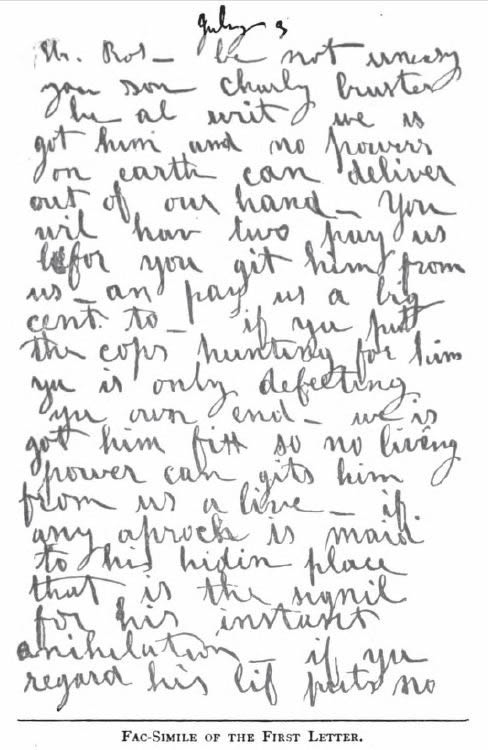 July 3
Mr. Ros— be not uneasy
you son charly bruster
he al writ we is
got him and no powers
on earth can deliver
out of our hand— You
wil hav two pay us
befor you git him from
us— an pay us a big
cent to— if you put
the cops hunting for him
yu is only defeeting
yu own end— we is
got him fitt so no living
power can gits him
from us a live— if
any aproch is maid
to his hidin place
that is the signil
for his instant
anihilation— if yu
regard his lif puts no
FAC-SIMILE OF THE FIRST LETTER.